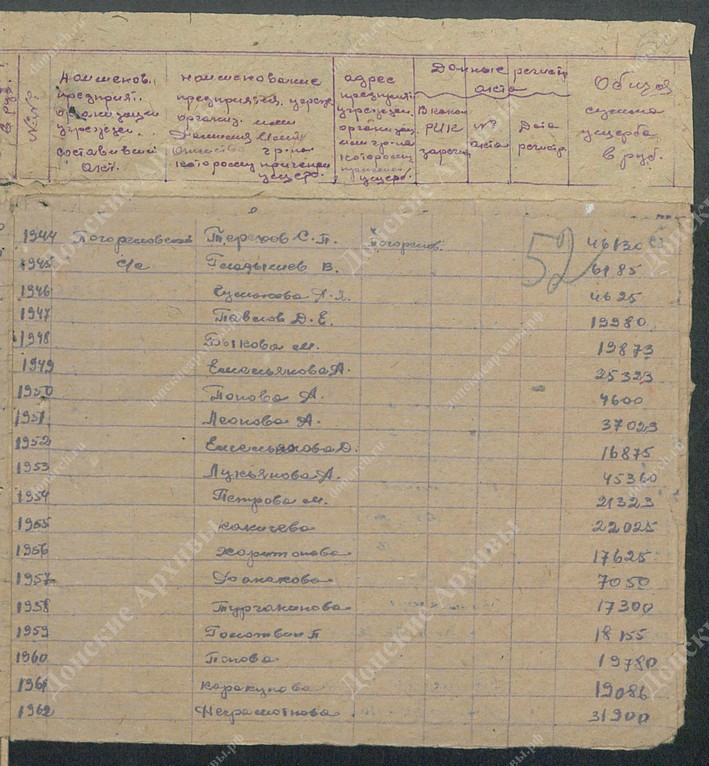 №№
Наименов. предприят. организации учрежден. составивший акт.
наименование предприятия, учрежд. организ. или Фамилия Имя Отчество гр-на которому причинен ущерб.
адрес предприят. учрежден. организац. или гр-на которому причинен ущерб.
Данные регистр. акта
В каком РИК зарегис
№ акта
Дата регистр.
Общая сумма ущерба в руб.
52
1944 Погореловский Терехов С.П. Погорелов. 46130
1945 с/с Гладышев В. 6185
1946 4625
1947 Павлов Д.Е. 19980
1948 Быкова М. 19873
1949 Емельянова А. 25323
1950 Попова А. 4600
1951 Леонова А. 37023
1952 Емельянова Д. 16875
1953 Лукьянова А. 45360
1954 Петрова М. 21323
1955 22025
1956 Харитонова 17625
1957 7050
1958 17300
1959 18155
1960 Попова 19780
1961 Каракулова 19086
1962 Неграмотнова 31900
Донские Архивы
донскиеархивы.рф